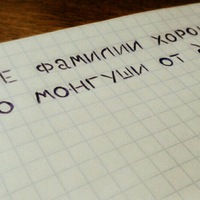 Е ФАМИЛИИ ХОРО
О МОНГУШИ ОТ